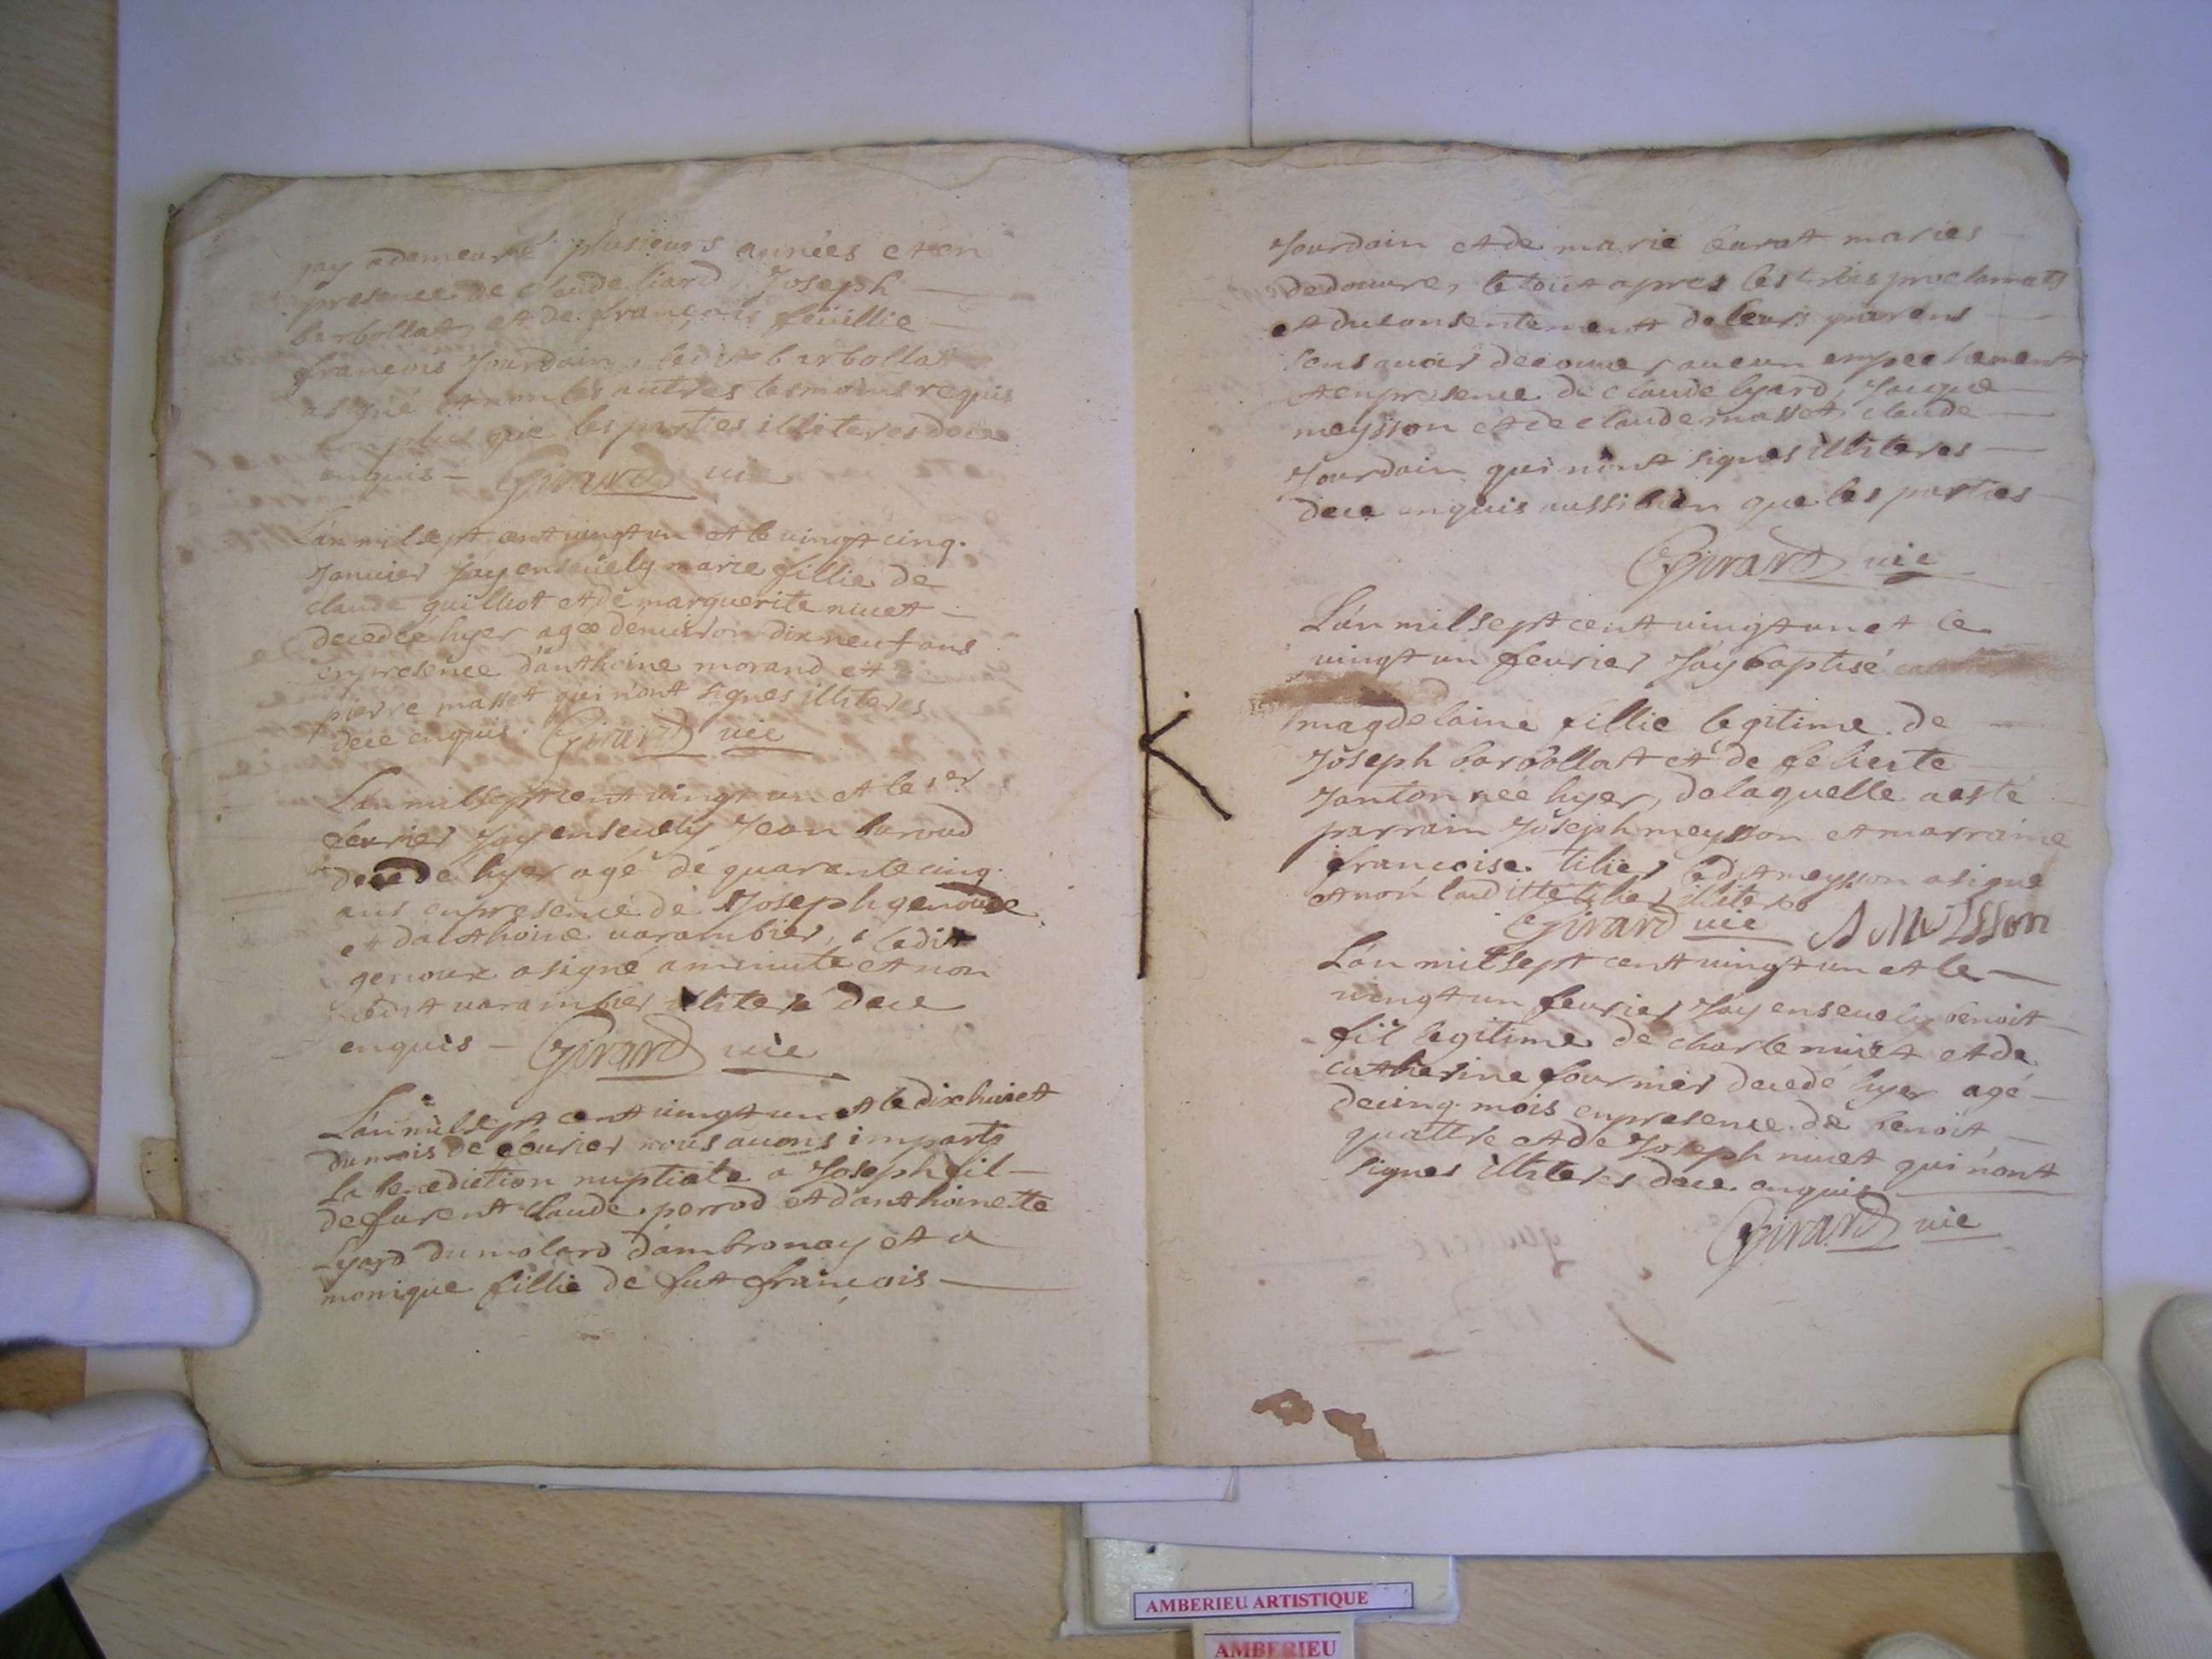 jay ademeuré plusieurs années et en
presence de claude liard Joseph
barbollat et de françois feüillie
françois Jourdain, ledit barbollat
a signé et non les autres tesmoins requis
que les parties illiteres dece
enquis - Girard vic
L'an mil sept cent vingt un et le vingt cinq
Januier Jay enseuely marie fillie de
claude guilliot et de marguerite niuet
decedée hyer agée denuiron dix neuf ans
en presence d'anthoine morand et
pierre masset qui n'ont signes illiteres
dece enquis. Girard vic
L'an mil sept cent vingt un et le 1er
feurier Jay enseuely Jean baroud
decedé hyer agé de quarente cinq
ans en presence de Joseph genoude
et danthoine uarambier, ledit
genoux a signé a minute et non
ledit uarambier illiteré dece
enquis - Girard vic
L'an mil sept cent vingt un et le dix huiet
du mois de feurier nous auons imparti
la benediction nuptiale a Joseph fil
defurent claude perrod et danthoinette
Lyard du molard d'ambronay et a
monique fillie de fut françois
Jourdain et de marie curat maries
dedouure, le tout apres les trois proclamats
et du consentement de leurs parens
sens auoir decouuer aucun empechement
et en presence de claude lyard, Jaque
meysson et de claude masset claude
Jourdain qui n'ont signes illiteres
dece enquis aussi bien que les parties
Girard vic
L'an mil sept cent vingt un et le
vingt un feurier Jay baptisé
magdelaine fillie legitime de
Joseph barbollat et de
Janton née hyer, de laquelle a esté
parrain Joseph meysson et marraine
francoise tilier ledit meysson a signé
et non laditte tilier illiteree
Girard vic J Meysson
L'an mil sept cent vingt un et le
vingt un feurier Jay enseuely benoit
fil legitime de charle niuet et de
catherine fournier decedé hyer agé
decinq mois en presence de benoit
quattre et de Joseph niuet qui n'ont
signes illiteres dece enquis
Girard vic
AMBERIEU ARTISTIQUE
AMBERIEU